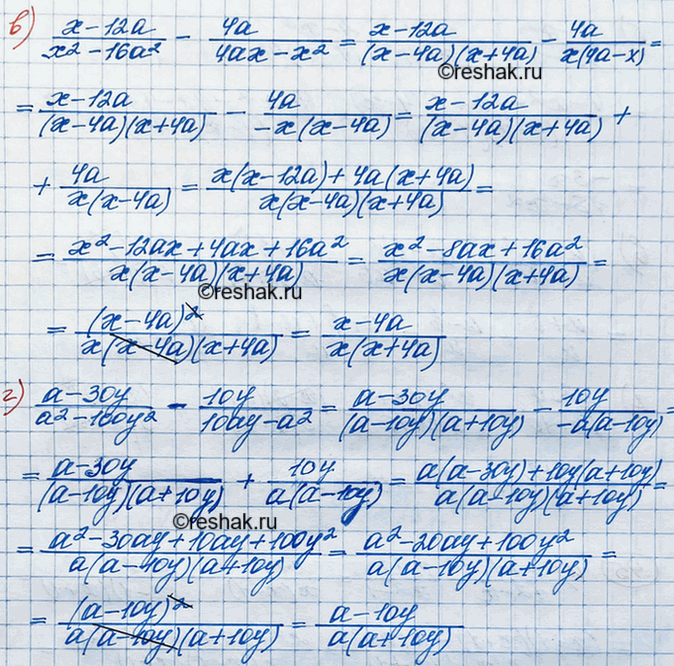 в) (x-12a)/(x²-16a²) - 4a/(4ax-x²) = (x-12a)/((x-4a)(x+4a)) - 4a/(x(4a-x)) =
©reshak.ru
= (x-12a)/((x-4a)(x+4a)) - 4a/(-x(x-4a)) = (x-12a)/((x-4a)(x+4a)) +
+ 4a/(x(x-4a)) = (x(x-12a)+4a(x+4a))/(x(x-4a)(x+4a)) =
= (x²-12ax+4ax+16a²)/(x(x-4a)(x+4a)) = (x²-8ax+16a²)/(x(x-4a)(x+4a)) =
©reshak.ru
= (x-4a)²/(x(x-4a)(x+4a)) = (x-4a)/(x(x+4a))
г) (a-30y)/(a²-100y²) - 10y/(10ay-a²) = (a-30y)/((a-10y)(a+10y)) - 10y/(-a(a-10y)) =
= (a-30y)/((a-10y)(a+10y)) + 10y/(a(a-10y)) = (a(a-30y)+10y(a+10y))/(a(a-10y)(a+10y)) =
©reshak.ru
= (a²-30ay+10ay+100y²)/(a(a-10y)(a+10y)) = (a²-20ay+100y²)/(a(a-10y)(a+10y)) =
= (a-10y)²/(a(a-10y)(a+10y)) = (a-10y)/(a(a+10y))